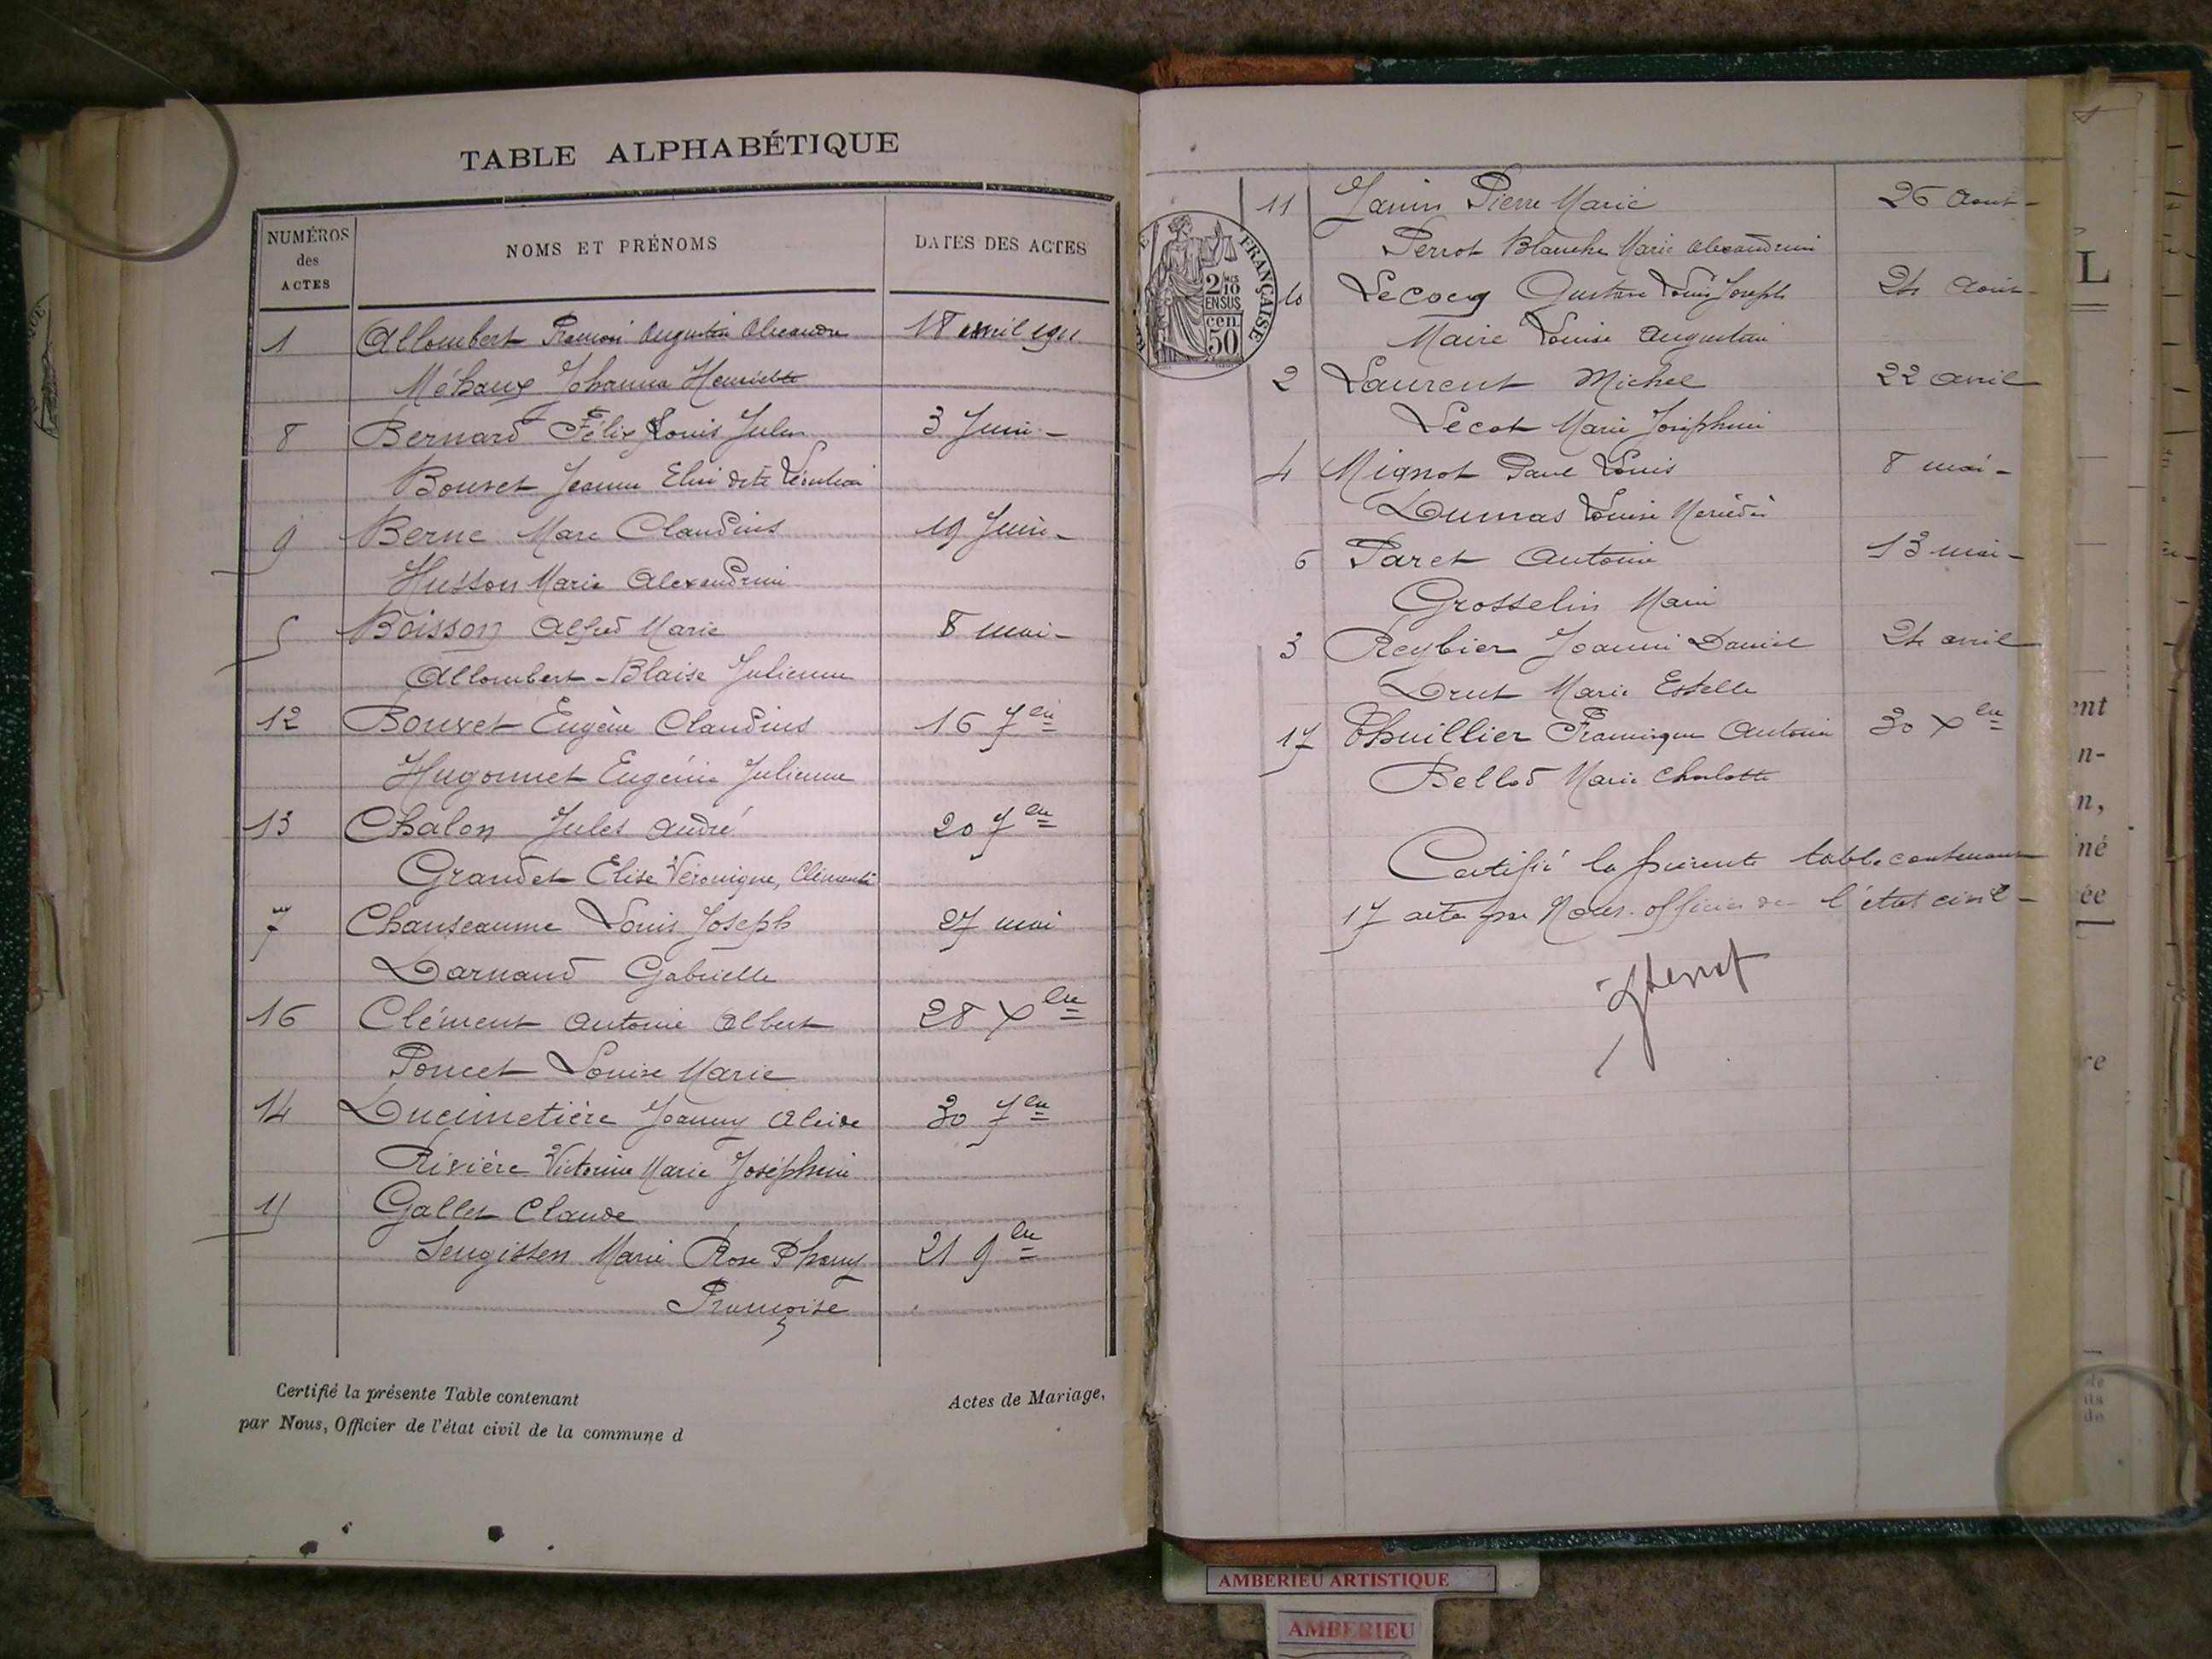 TABLE ALPHABÉTIQUE
NUMÉROS des ACTES
NOMS ET PRÉNOMS
DATES DES ACTES
1 Allombert François Augustin Alexandre 18 avril 1911
Méhaux Johanna Henriette
8 Bernard Félix Louis Jules 3 Juin -
Bouvet Jeanne Elise dite
9 Berne Marc Claudius 19 Juin -
Husson Marie Alexandrine
5 Boisson Alfred Marie 8 mai -
Allombert-Blaise Julienne
12 Bouvet Eugène Claudius 16 7bre
Hugonnet Eugénie Julienne
13 Chalon Jules André 20 7bre
Grandet Elise Véronique, Clémentine
7 Chanseaume Louis Joseph 27 mai
Darnand Gabrielle
16 Clément Antoine Albert 28 Xbre
Poncet Louise Marie
14 Ducimetière Joanny Alcide 30 7bre
Rivière Victorine Marie Joséphine
15 Gallet Claude
Marie Rose Phany 21 9bre
Françoise
Certifié la présente Table contenant Actes de Mariage,
par Nous, Officier de l'état civil de la commune d
11 Janin Pierre Marie 26 Aout -
Perrot Blanche Marie Alexandrine
10 Lecocq Gustave Louis Joseph 24 Aout -
Maire Louise Augustine
2 Laurent Michel 22 avril
Lecot Marie Joséphine
4 Mignot Paul Louis 8 mai -
Dumas Louise
6 Paret Antoine 13 mai -
Grosselin Marie
3 Reybier Joanni Daniel 24 avril
Drut Marie Estelle
17 Thuillier Françisque Antoine 30 Xbre
Bellod Marie Charlotte
Certifié la présente table contenant
17 actes par Nous officier de l'état civil -
FRANÇAISE
2/10
EN SUS
50 cen
L
ent
n-
n,
iné
ée
re
AMBERIEU ARTISTIQUE
AMBERIEU